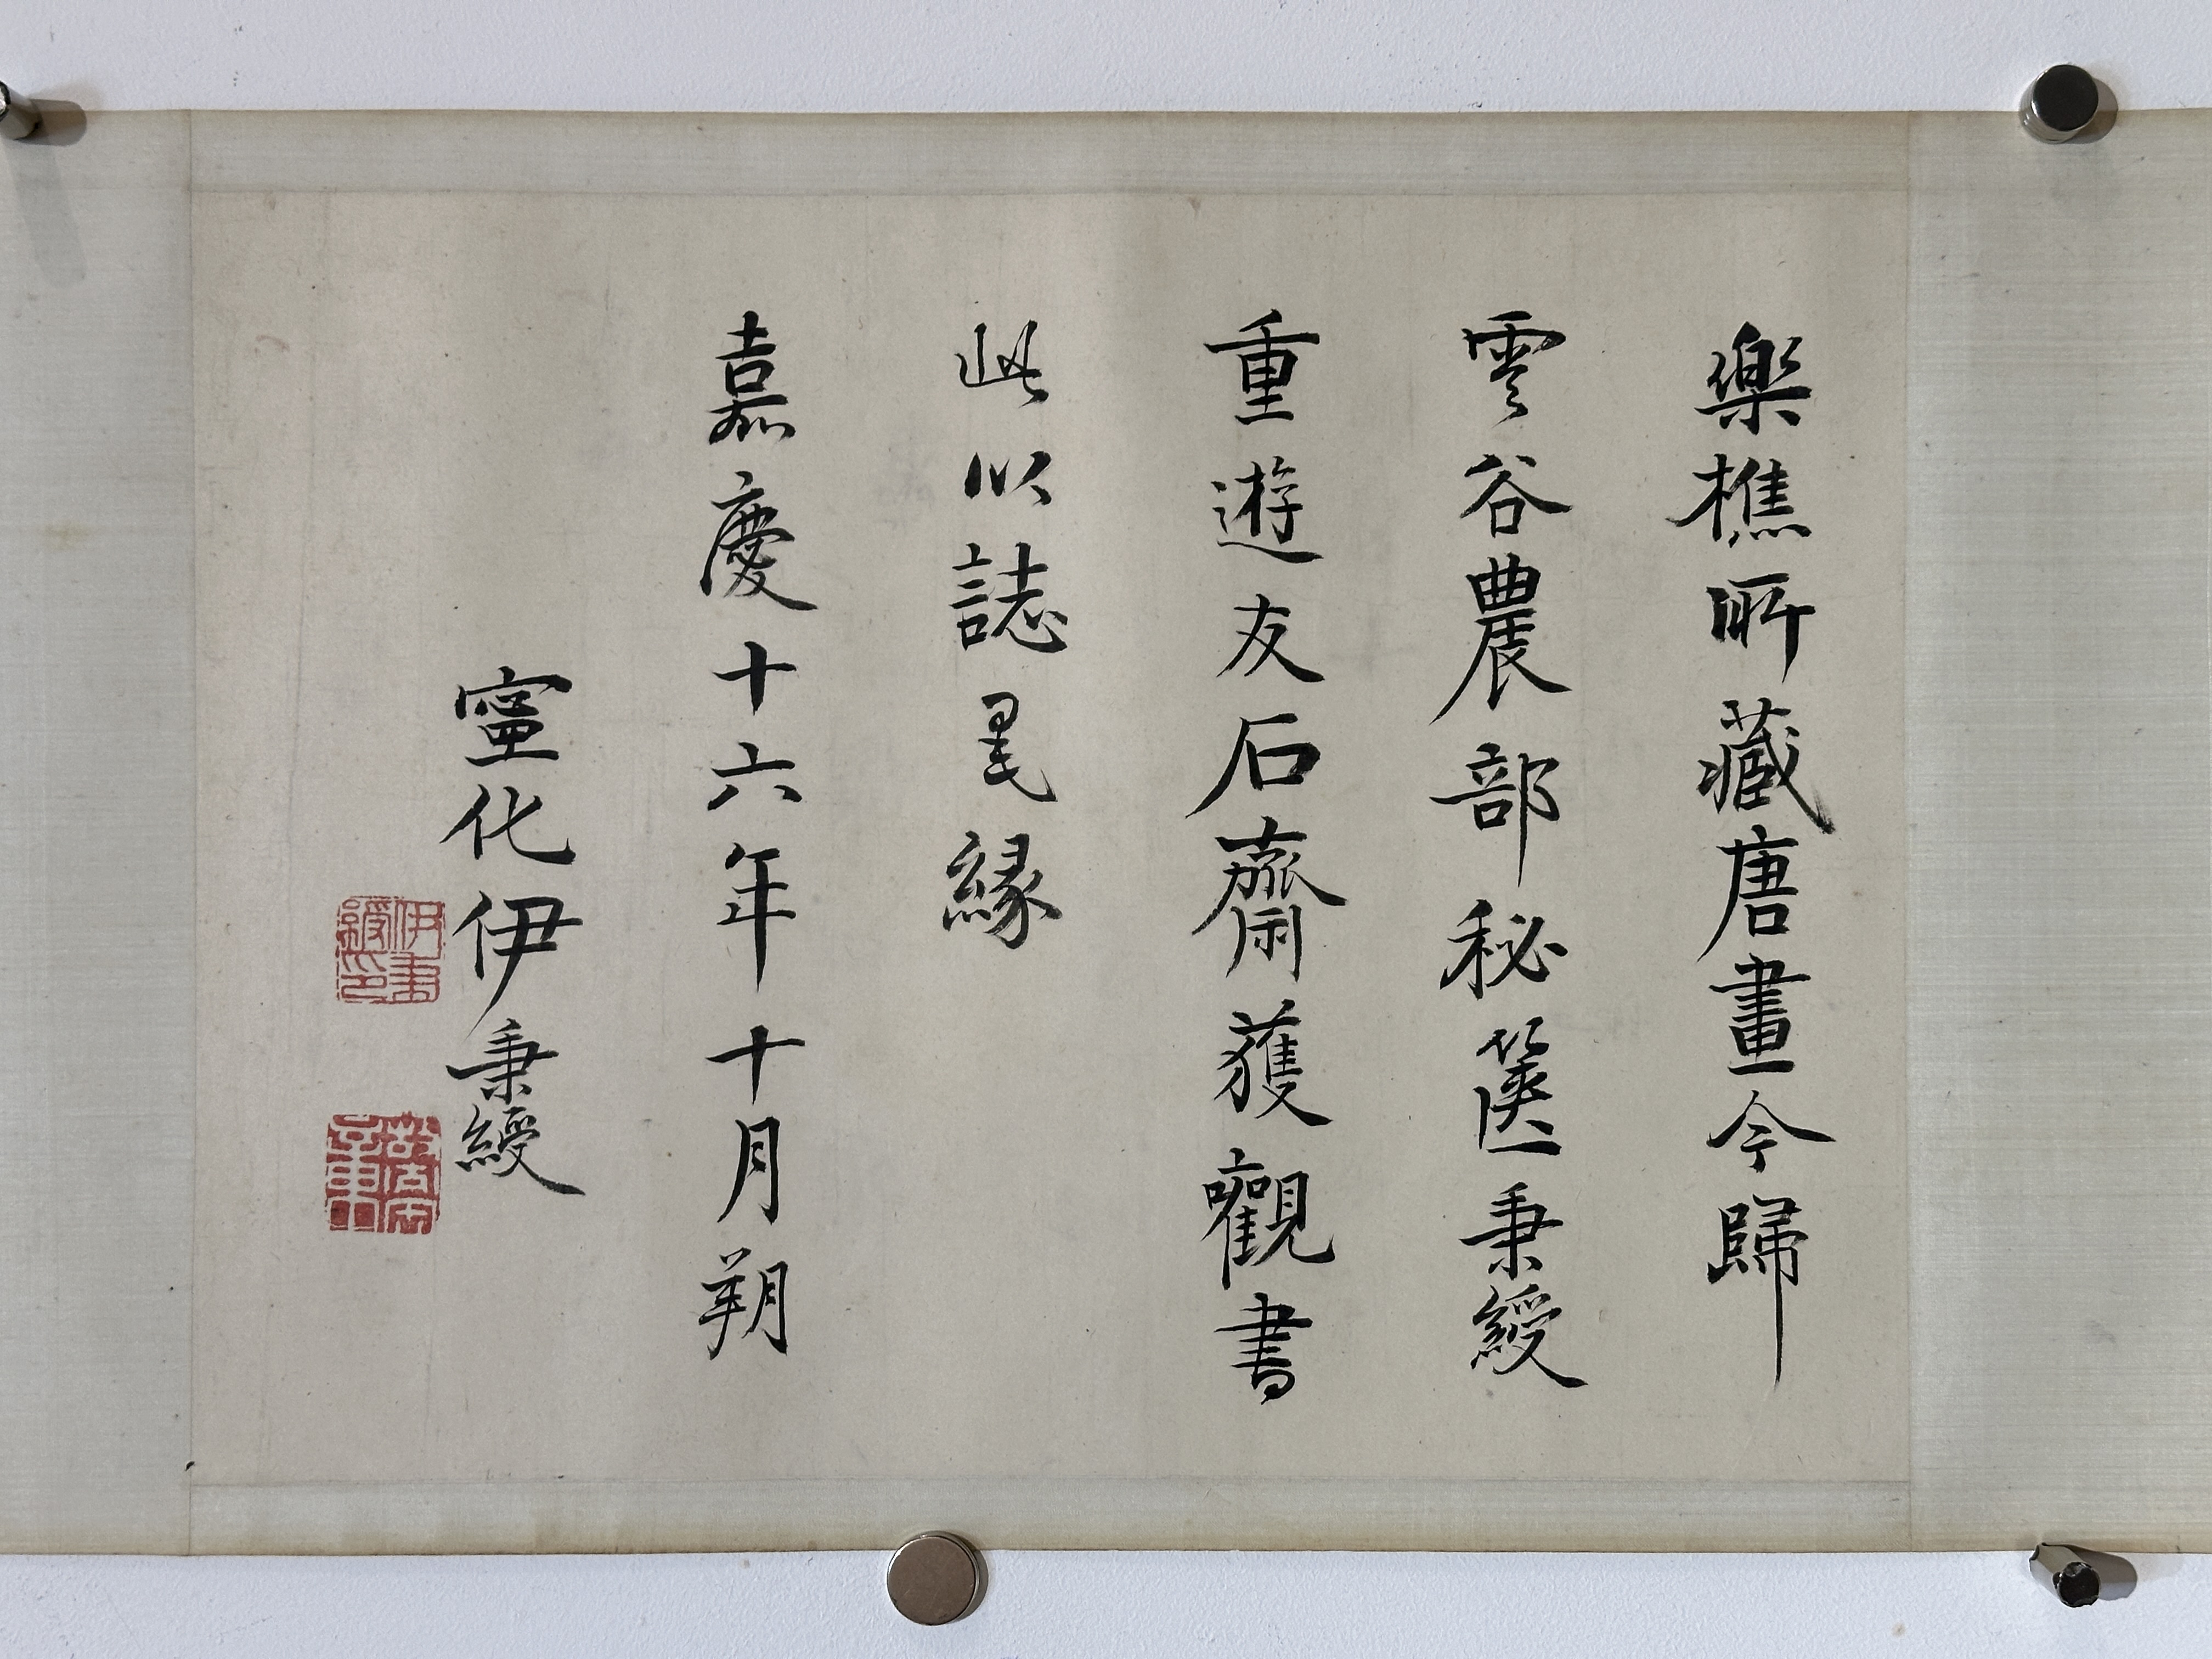 樂樵所藏唐畫今歸
雲谷農部秘篋秉綬
重遊友石齋獲觀書
此以誌墨緣
嘉慶十六年十月朔
寧化伊秉綬
伊秉綬印